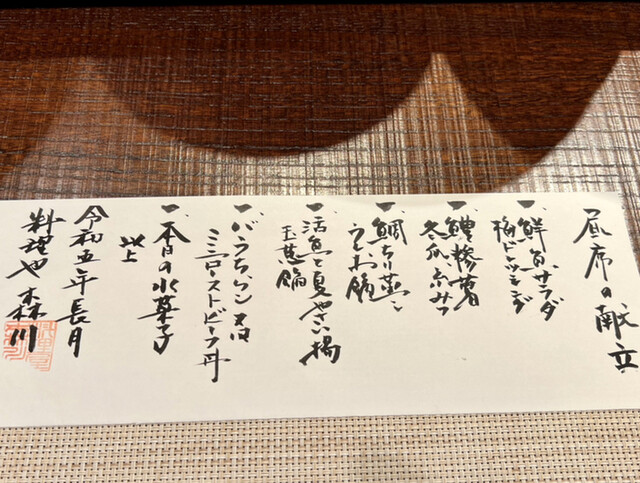 昼席の献立
一、鮮魚サラダ
梅ドレッシング
一、鱧糝薯
冬瓜、糸みつ
一、鯛ちり蒸し
うしお餡
一、活魚と夏やさい揚
玉葱餡
一、ばらちらし又は
ミニローストビーフ丼
一、本日の水菓子
以上
令和五年長月
料理や 森川